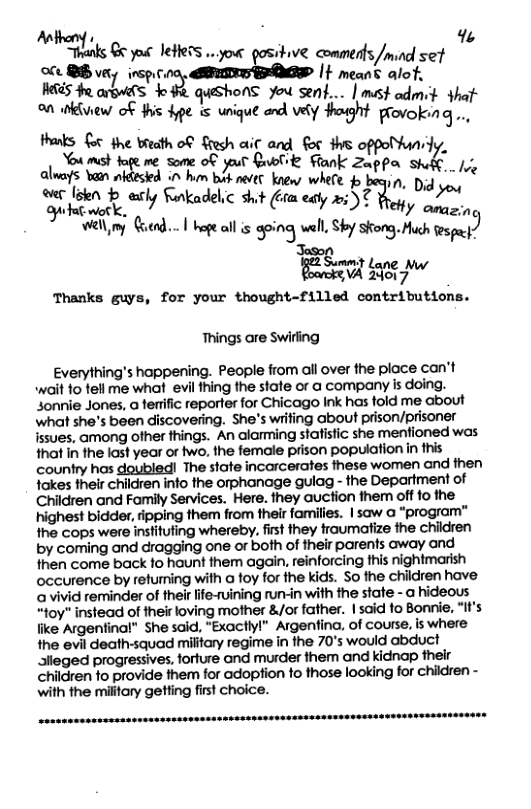 46
Anthony,
Thanks for your letters...your positive comments/mind set
are very inspiring. It means alot.
Here's the answers to the questions you sent... I must admit that
an interview of this type is unique and very thought provoking...
thanks for the breath of fresh air and for this opportunity.
You must tape me some of your favorite Frank Zappa stuff... I've
always been interested in him but never knew where to begin. Did you
ever listen to early Funkadelic shit (circa early 70s)? Pretty amazing
guitar work.
Well, my friend... I hope all is going well. Stay strong. Much respect.
Jason
1022 Summit Lane NW
Roanoke, VA 24017
Thanks guys, for your thought-filled contributions.
Things are Swirling
Everything's happening. People from all over the place can't
wait to tell me what evil thing the state or a company is doing.
Bonnie Jones, a terrific reporter for Chicago Ink has told me about
what she's been discovering. She's writing about prison/prisoner
issues, among other things. An alarming statistic she mentioned was
that in the last year or two, the female prison population in this
country has doubled! The state incarcerates these women and then
takes their children into the orphanage gulag - the Department of
Children and Family Services. Here, they auction them off to the
highest bidder, ripping them from their families. I saw a "program"
the cops were instituting whereby, first they traumatize the children
by coming and dragging one or both of their parents away and
then come back to haunt them again, reinforcing this nightmarish
occurence by returning with a toy for the kids. So the children have
a vivid reminder of their life-ruining run-in with the state - a hideous
"toy" instead of their loving mother &/or father. I said to Bonnie, "It's
like Argentina!" She said, "Exactly!" Argentina, of course, is where
the evil death-squad military regime in the 70's would abduct
alleged progressives, torture and murder them and kidnap their
children to provide them for adoption to those looking for children -
with the military getting first choice.